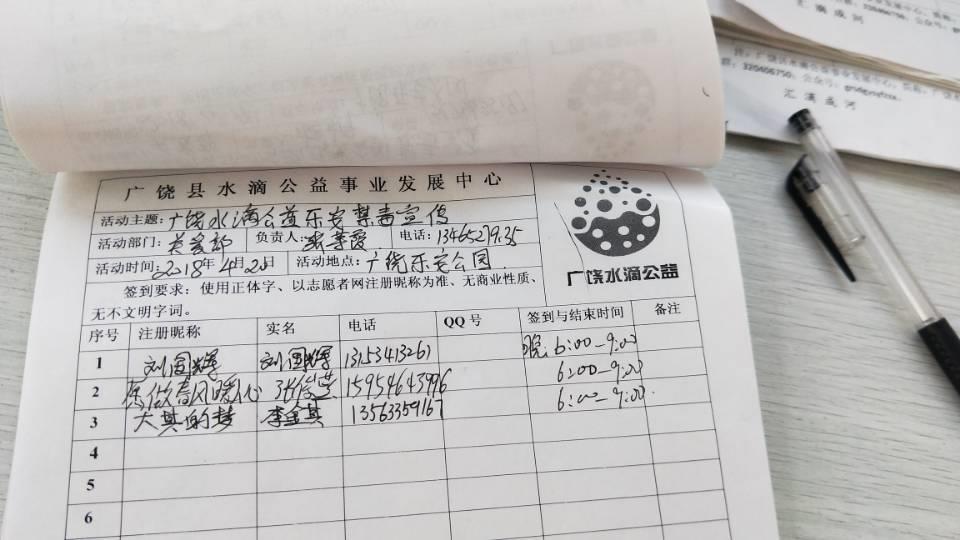 汇滴成河
320406750; 公众号:
汇滴成河
广饶县水滴公益事业发展中心
活动主题: 广饶水滴公益乐安禁毒宣传
活动部门: 关爱部 负责人: 电话:
活动时间: 2018年4月20日 活动地点: 广饶乐安公园
广饶水滴公益
签到要求: 使用正体字、以志愿者网注册昵称为准、无商业性质、
无不文明字词。
序号 注册昵称 实名 电话 QQ号 签到与结束时间 备注
1 刘国辉 刘国辉 晚 6:00-9:00
2 春风暖心 15954643996 6:00-9:00
3 大其的梦 李金其 13563359167 6:00-9:00
4
5
6